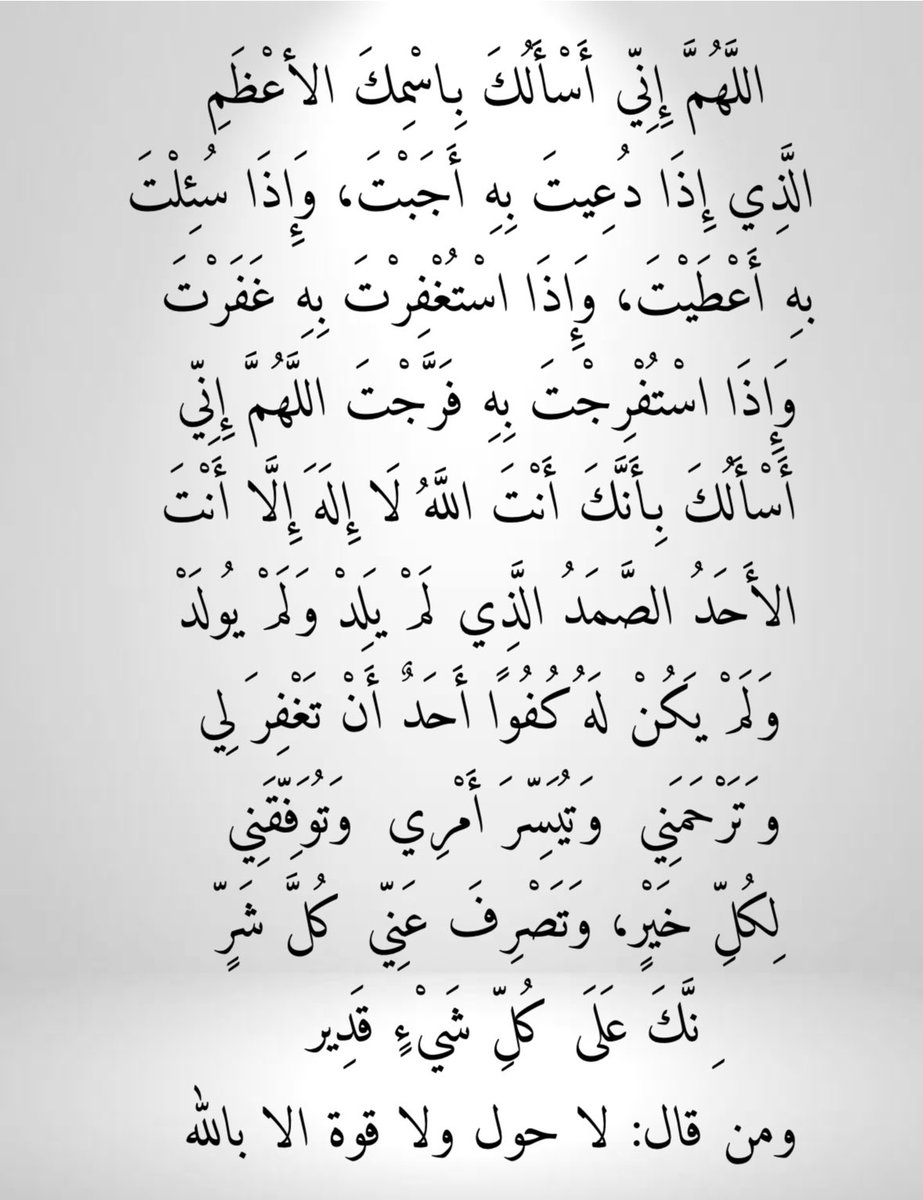 اللَّهُمَّ إِنِّي أَسْأَلُكَ بِاسْمِكَ الأَعْظَمِ
الَّذِي إِذَا دُعِيتَ بِهِ أَجَبْتَ، وَإِذَا سُئِلْتَ
بِهِ أَعْطَيْتَ، وَإِذَا اسْتُغْفِرْتَ بِهِ غَفَرْتَ
وَإِذَا اسْتُفْرِجْتَ بِهِ فَرَّجْتَ اللَّهُمَّ إِنِّي
أَسْأَلُكَ بِأَنَّكَ أَنْتَ اللَّهُ لَا إِلَهَ إِلَّا أَنْتَ
الأَحَدُ الصَّمَدُ الَّذِي لَمْ يَلِدْ وَلَمْ يُولَدْ
وَلَمْ يَكُنْ لَهُ كُفُوًا أَحَدٌ أَنْ تَغْفِرَ لِي
وَتَرْحَمَنِي وَتُيَسِّرَ أَمْرِي وَتُوَفِّقَنِي
لِكُلِّ خَيْرٍ، وَتَصْرِفَ عَنِّي كُلَّ شَرٍّ
ِنَّكَ عَلَى كُلِّ شَيْءٍ قَدِير
ومن قال: لا حول ولا قوة الا بالله